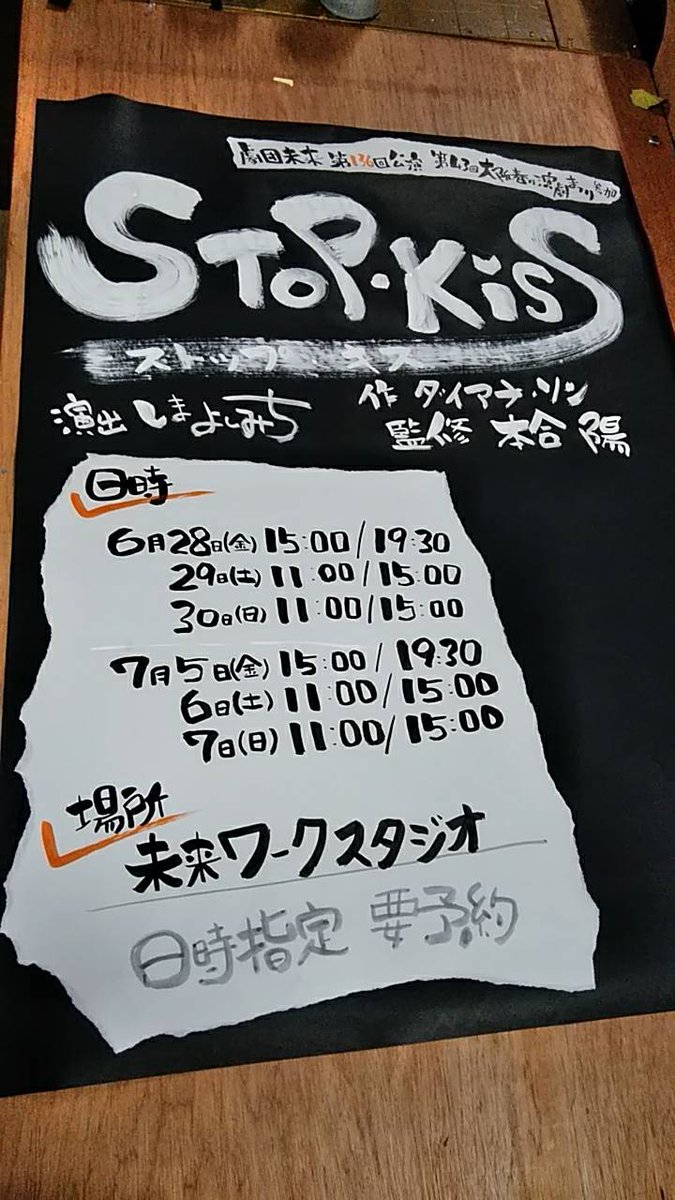 劇団未来 第136回公演 第43回大阪春の演劇まつり参加
STOP・KiSS
ストップ・キス
作 ダイアナ・ソン
演出 しまよしみち
監修 本合 陽
日時
6月28日(金) 15:00/19:30
29日(土) 11:00/15:00
30日(日) 11:00/15:00
7月5日(金) 15:00/19:30
6日(土) 11:00/15:00
7日(日) 11:00/15:00
場所
未来ワークスタジオ
日時指定 要予約